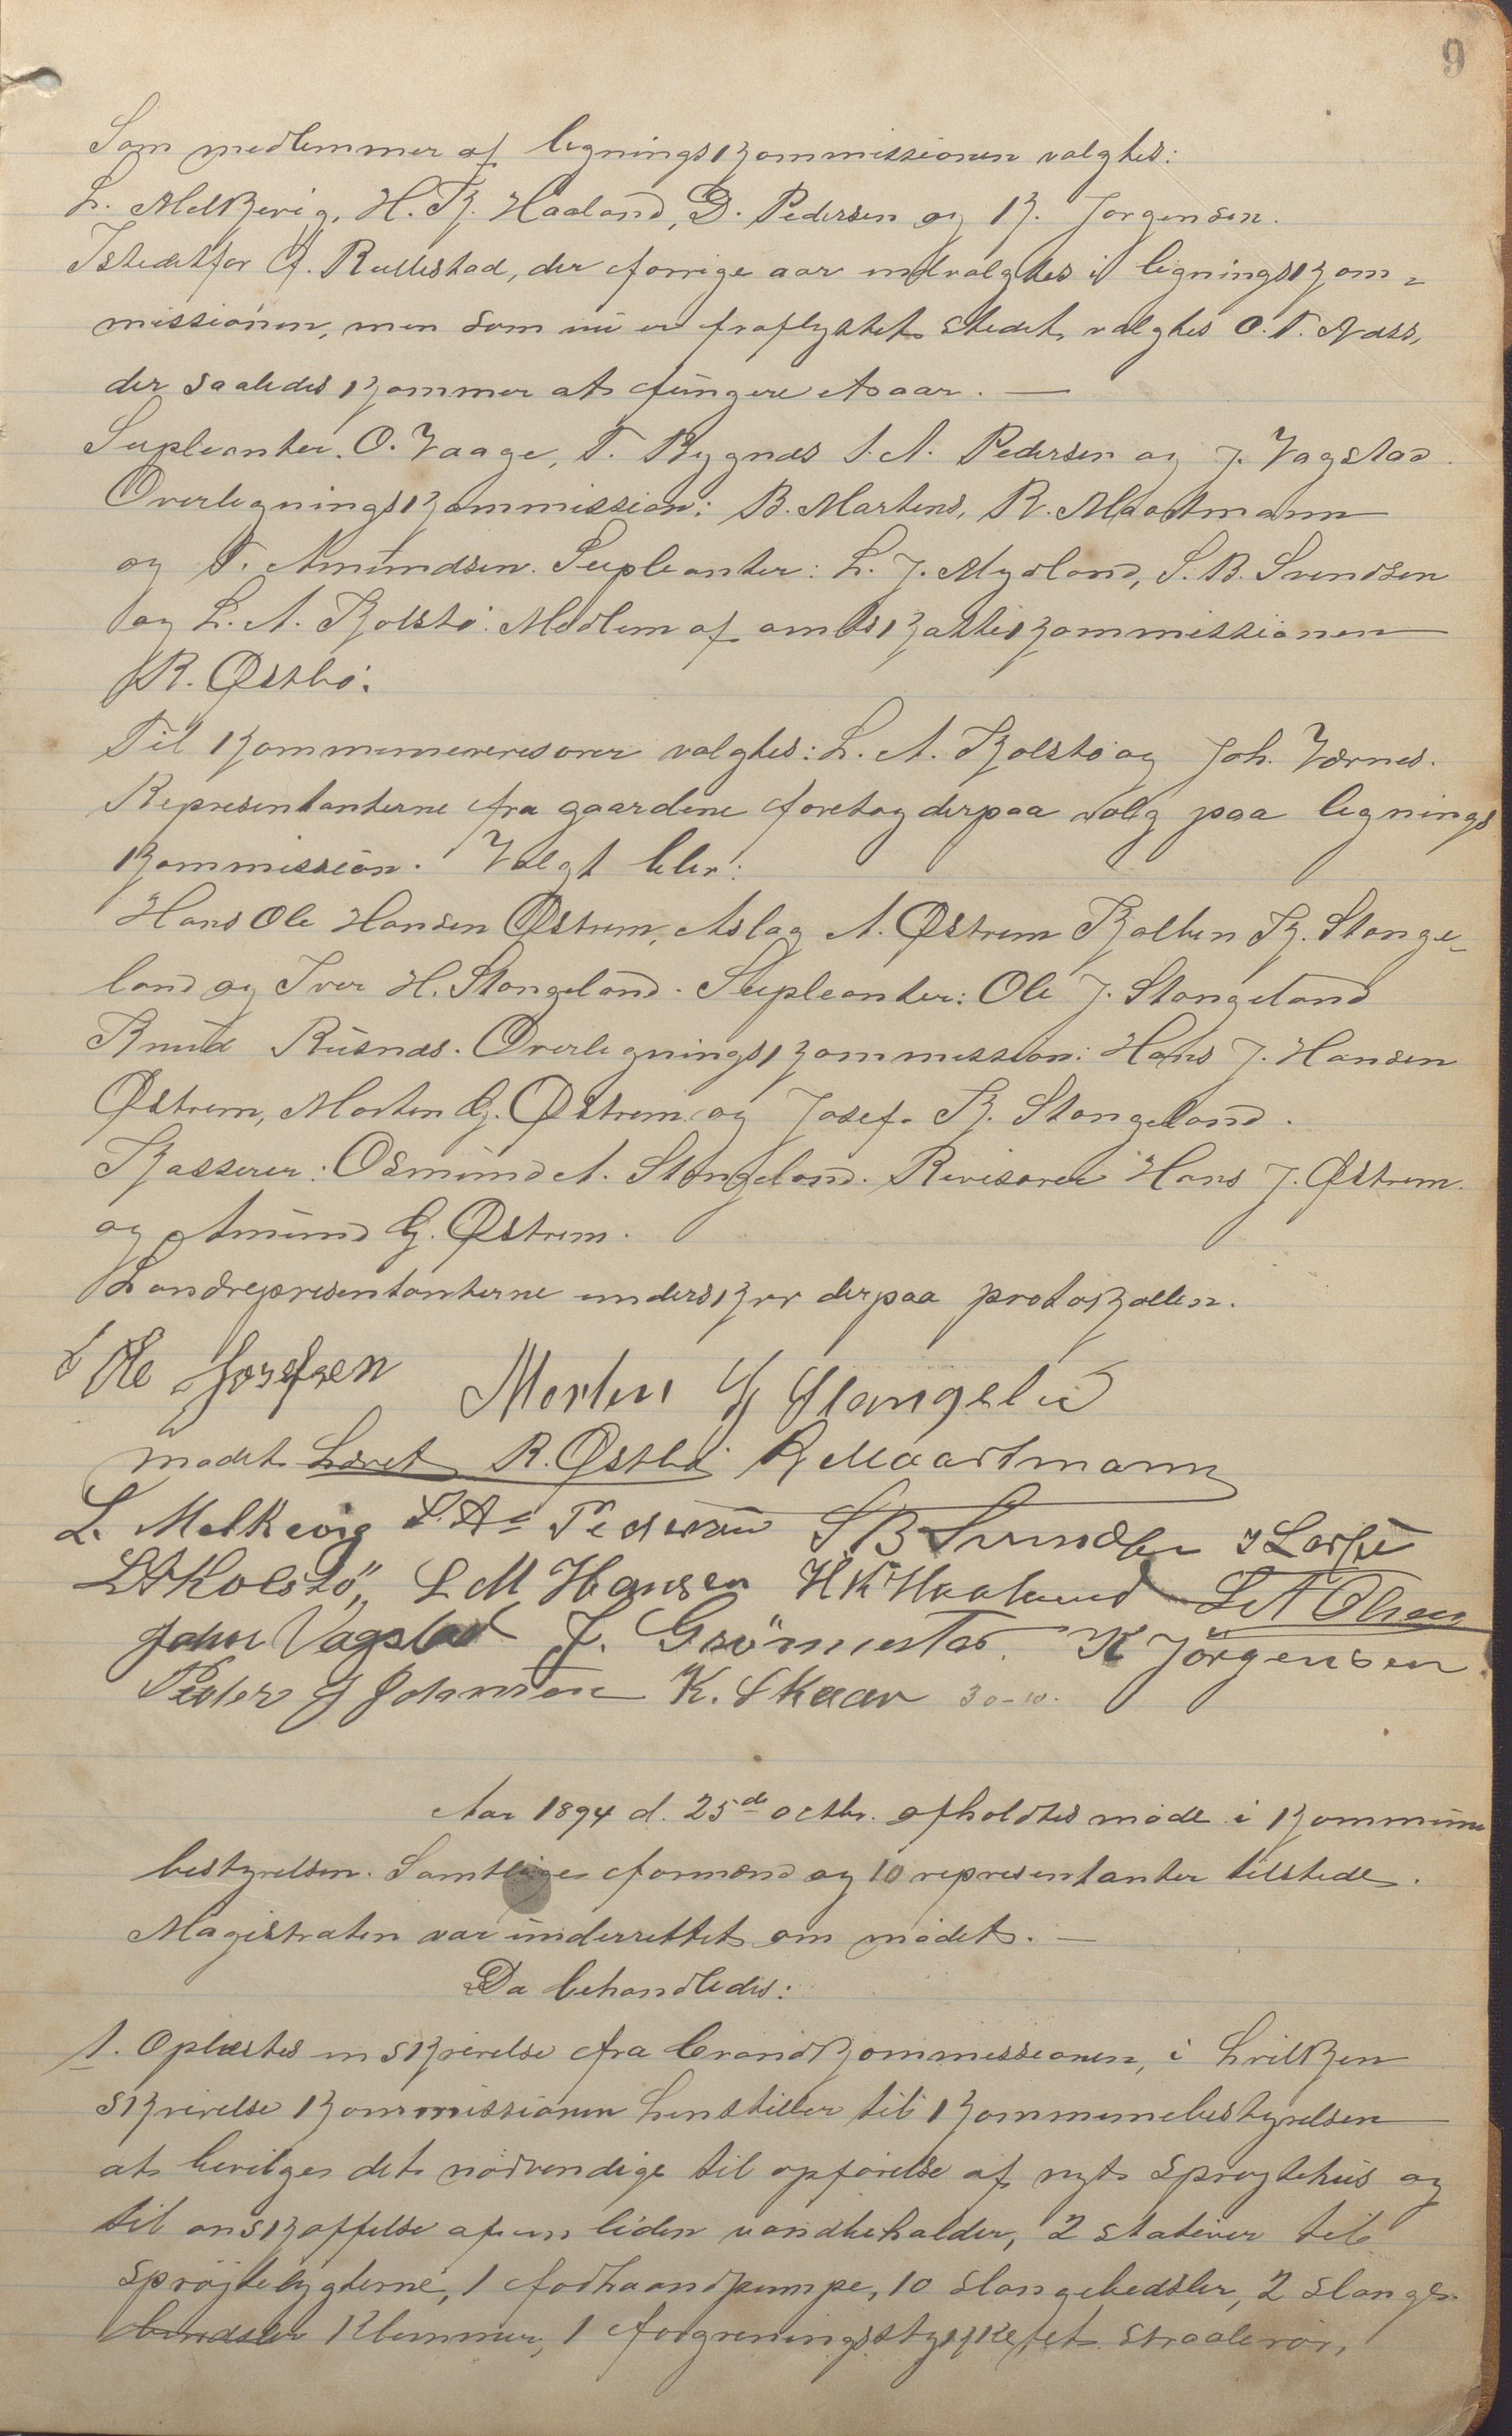 9
Som medlemmer af ligningskommissionen valgtes:
L. Melkevig, H. K. Haaland, D. Pedersen og K. Jørgensen.
Istedetfor A. Rullestad, der forrige aar indvalgtes i ligningskom-
missionen, men som nu er fraflyttet stedet, valgtes O. T. Næss,
der saaledes kommer at fungere et aar. —
Supleanter. O. Vaage, T. Bygnæs S. A. Pedersen og J. Vagstad.
Overligningskommission: B. Martens, R. Maartmann
og T. Amundsen. Supleanter: L. J. Mydland, S. B. Svendsen
og L. A. Kolstø. Medlem af amtsskattekommissionen
R. Østbø.
Til kommunerevisorer valgtes: L. A. Kolstø og Joh. Værnes.
Repræsentanterne fra gaardene foretog derpaa valg paa lignings
kommission. Valgt blev:
Hans Ole Hansen Østrem, Aslag A. Østrem Kolben K. Stange-
land og Iver H. Stangeland. Supleanter: Ole J. Stangeland
Knud Risnæs. Overligningskommission: Hans J. Hansen
Østrem, Morten G. Østrem og Josef K. Stangeland.
Kasserer: Osmund A. Stangeland. Revisorer Hans J. Østrem.
og Amund G. Østrem.
Landrepresentanterne underskrev derpaa protokollen.
Ole Josefsen Morten G Stangeland
mødet hævet R. Østbø R Maartmann
L. Melkevig S. A. Pedersen S B Svendsen
LAKolstö, L M Hansen H K Haaland L A Olsen
John Vagstad J. Grönnestad. K Jörgensen.
Peder J Johannesen K. Skaar 30-10.
Aar 1894 d. 25de octbr. afholdtes møde i kommune
bestyrelsen. Samtlige formænd og 10 representanter tilstede.
Magistraten var underrettet om mødet. —
Da behandledes:
1. Oplæstes en skrivelse fra brandkommissionen, i hvilken
skrivelse kommissionen henstiller til kommunebestyrelsen
at bevilges det nødvendige til opførelse af nyt sprøytehus og
til anskaffelse af en liden vandbeholder, 2 stativer til
sprøjtelygterne, 1 fodhaandpumpe, 10 slangebedsler, 2 slange-
bendsler klemmer, 1 forgreningsstykke, et straalerør,